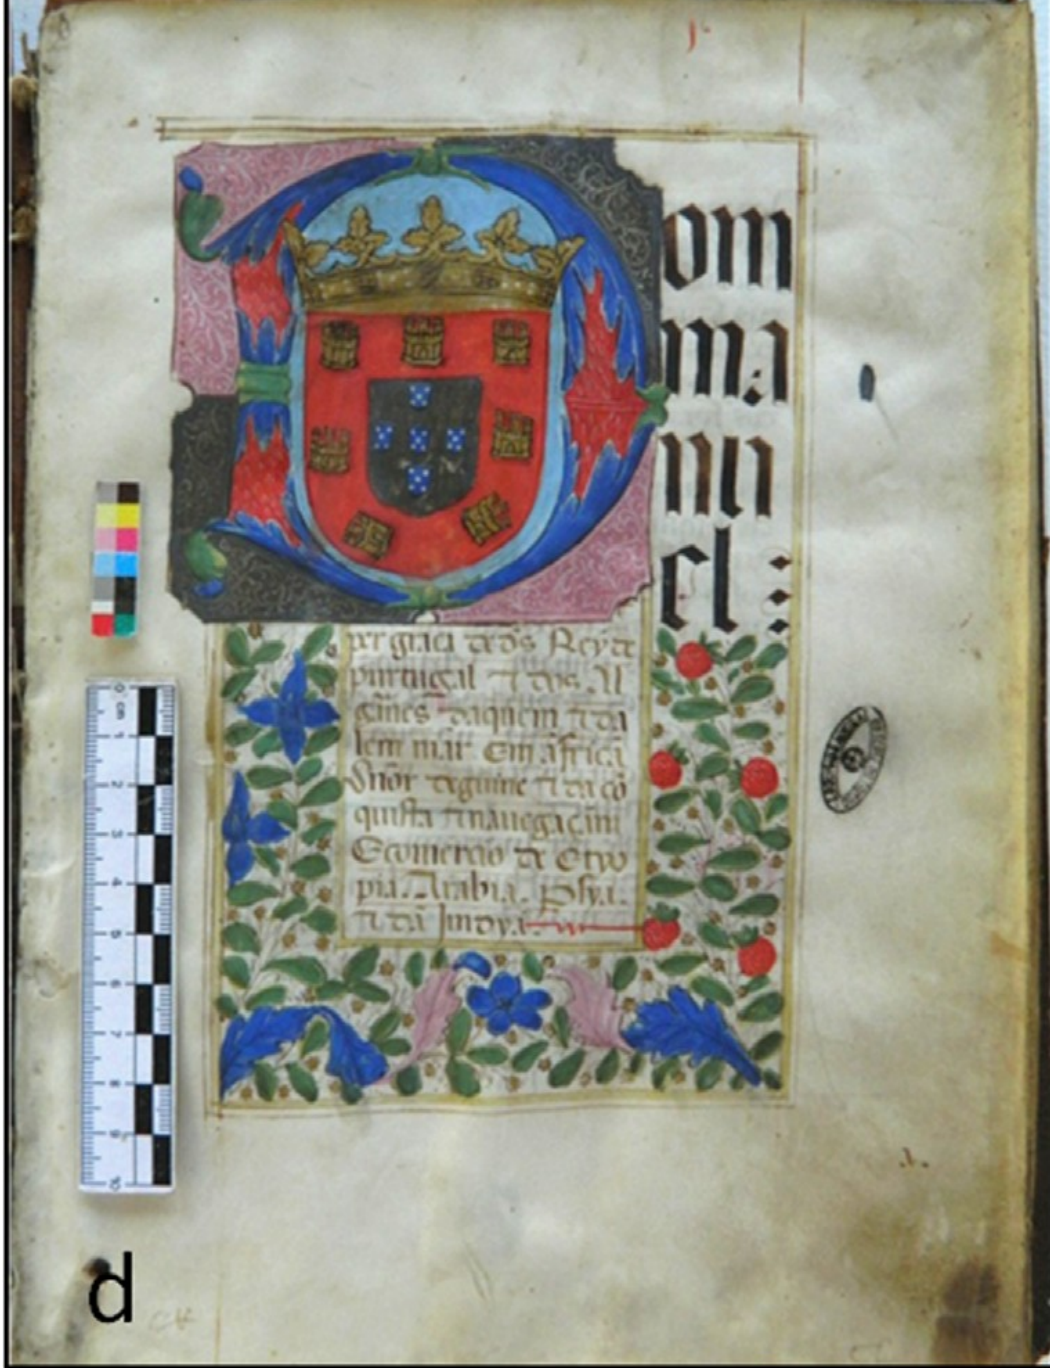 J.
D om
ma
nu
el :
per graça de d's Rey de
purtugal ⁊ dos Al
garues daquem ⁊ da
lem mar Em africa
Snõr de guine ⁊ da cõ
quista ⁊ nauegaçam
Ecomercio de Etyo
pia. Arabia. Psya.
⁊ da Jndya
0 cm 1 2 3 4 5 6 7 8 9 10
.1.
d